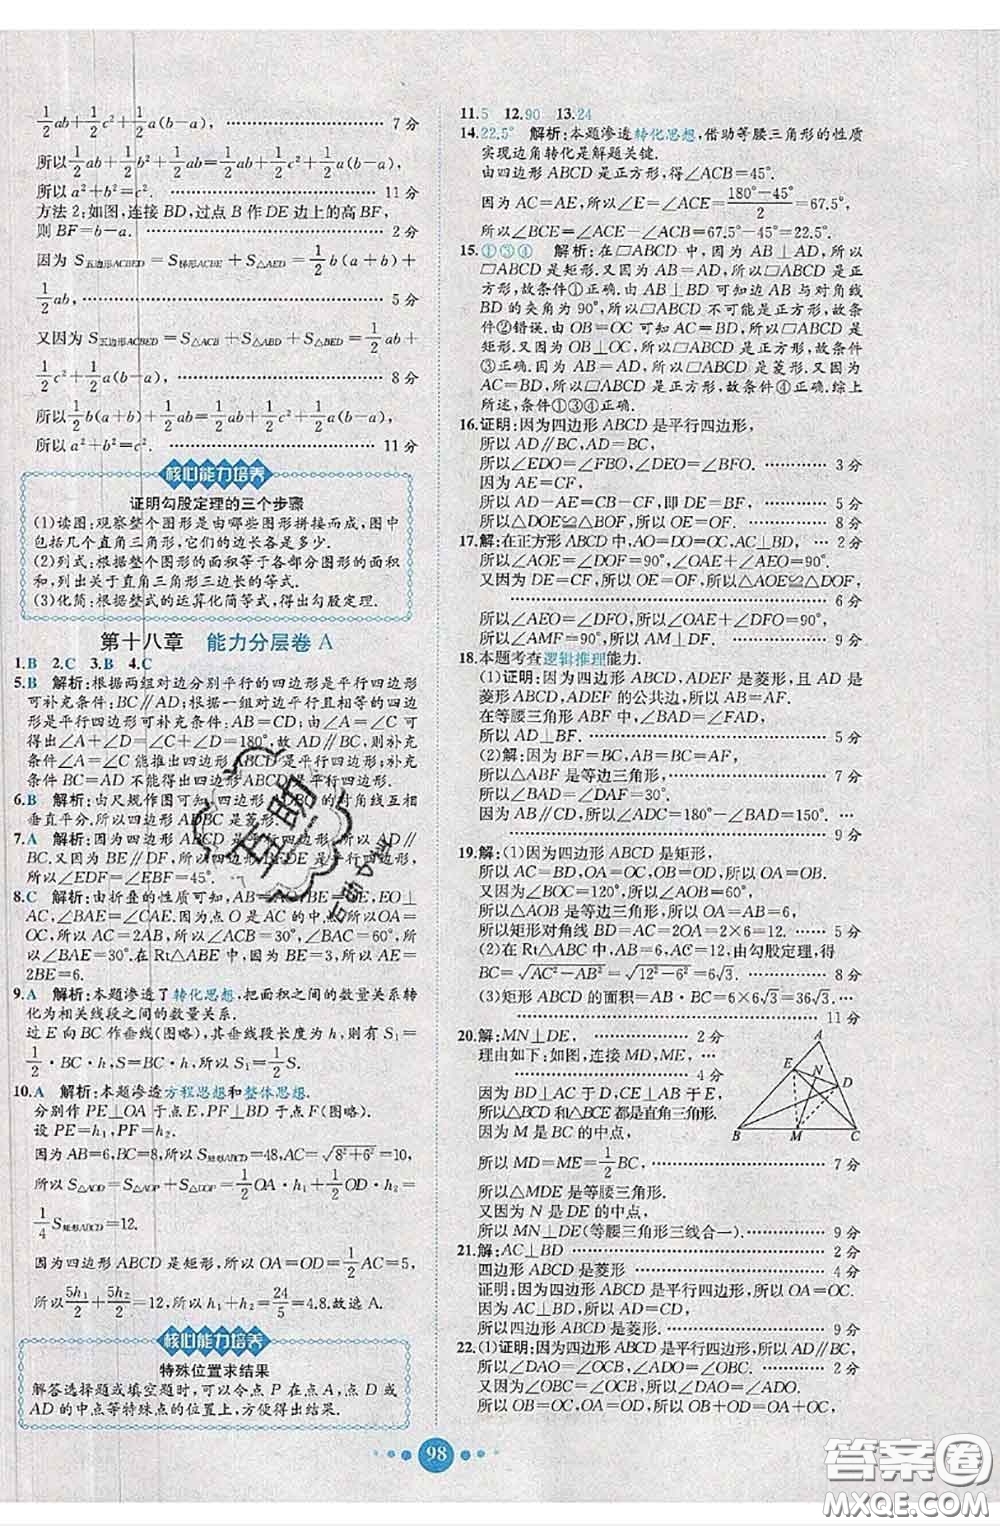 ½ab+½c²+½a(b−a), ………… 7 分
所以½ab+½b²+½ab=½ab+½c²+½a(b−a),
所以 a²+b²=c². ………… 11 分
方法 2:如图,连接 BD,过点 B 作 DE 边上的高 BF,
则 BF=b−a. ………… 2 分
因为 S五边形ACBED=S梯形ACBE+S△AED=½b(a+b)+
½ab, ………… 5 分
又因为 S五边形ACBED=S△ACB+S△ABD+S△BED=½ab+
½c²+½a(b−a), ………… 8 分
所以½b(a+b)+½ab=½ab+½c²+½a(b−a),
所以 a²+b²=c². ………… 11 分
核心能力培养
证明勾股定理的三个步骤
(1)读图:观察整个图形是由哪些图形拼接而成,图中
包括几个直角三角形,它们的边长各是多少.
(2)列式:根据整个图形的面积等于各部分图形的面
积和,列出关于直角三角形三边长的等式.
(3)化简:根据整式的运算化简等式,得出勾股定理.
第十八章 能力分层卷 A
1.B 2.C 3.B 4.C
5.B 解析:根据两组对边分别平行的四边形是平行四边形
可补充条件:BC∥AD;根据一组对边平行且相等的四边
形是平行四边形可补充条件:AB=CD;由∠A=∠C 可
得出∠A+∠D=∠C+∠D=180°,故 AD∥BC,则补充
条件∠A=∠C 能推出四边形ABCD是平行四边形;补充
条件 BC=AD 不能得出四边形ABCD是平行四边形.
6.B 解析:由尺规作图可知,四边形 ADBC 的对角线互相
垂直平分,所以四边形 ADBC 是菱形.
7.A 解析:因为四边形 ABCD 是平行四边形,所以 AD∥
BC.又因为 BE∥DF,所以四边形BEDF是平行四边形,
所以∠EDF=∠EBF=45°.
8.C 解析:由折叠的性质可知,∠BAE=∠OAE,BE=EO⊥
AC,∠BAE=∠CAE.因为点 O 是 AC 的中点,所以OA=
OC,所以 AE=CE,所以∠CAE=∠ACE,所以∠BAE=
30°.在 Rt△ABE 中,∠BAE=30°,因为 BE=3,所以 AE=
2BE=6.
9.A 解析:本题渗透了转化思想,把面积之间的数量关系转
化为相关线段之间的数量关系.
过 E 向 BC 作垂线(图略),其垂线段长度为 h,则有 S₁=
½·BC·h,S=BC·h,所以 S₁=½S.
10.A 解析:本题渗透方程思想和整体思想.
分别作 PE⊥OA 于点 E,PF⊥BD 于点 F(图略).
设 PE=h₁,PF=h₂.
因为 AB=6,BC=8,所以 S矩形ABCD=48,AC=√(8²+6²)=10,
所以 S△AOD=S△AOP+S△DOP=½OA·h₁+½OD·h₂=
¼S矩形ABCD=12.
因为四边形 ABCD 是矩形,所以 OA=OD=½AC=5,
所以5h₁/2+5h₂/2=12,所以 h₁+h₂=24/5=4.8.故选 A.
核心能力培养
特殊位置求结果
解答选择题或填空题时,可以令点 P 在点 A,点 D 或
AD 的中点等特殊点的位置上,方便得出结果.
11.5 12.90 13.24
14.22.5° 解析:本题渗透转化思想,借助等腰三角形的性质
实现边角转化是解题关键.
由四边形 ABCD 是正方形,得∠ACB=45°.
因为 AC=AE,所以∠E=∠ACE=(180°−45°)/2=67.5°,
所以∠BCE=∠ACE−∠ACB=67.5°−45°=22.5°.
15.①③④ 解析:在▱ABCD 中,因为 AB⊥AD,所以
▱ABCD 是矩形.又因为 AB=AD,所以▱ABCD 是正方
形,故条件①正确.由 AB⊥BD 可知边 AB 与对角线
BD 的夹角为 90°,所以▱ABCD 不可能是正方形,故条
件②错误.由 OB=OC 可知 AC=BD,所以▱ABCD 是矩
形.又因为 OB⊥OC,所以▱ABCD 是正方形,故条件
③正确.因为 AB=AD,所以▱ABCD 是菱形.又因为
AC=BD,所以▱ABCD 是正方形,故条件④正确.综上
所述,条件①③④正确.
16.证明:因为四边形 ABCD 是平行四边形,
所以 AD∥BC,AD=BC,
所以∠EDO=∠FBO,∠DEO=∠BFO. ………… 3 分
因为 AE=CF,
所以 AD−AE=CB−CF,即 DE=BF. ………… 5 分
所以△DOE≌△BOF,所以 OE=OF. ………… 8 分
17.解:在正方形 ABCD 中,AO=DO=OC,AC⊥BD, … 2 分
所以∠AOE=∠DOF=90°,∠OAE+∠AEO=90°.
又因为 DE=CF,所以 OE=OF,所以△AOE≌△DOF,
………… 6 分
所以∠OAE=∠ODF,所以∠ODF+∠AEO=90°,
所以∠AMF=90°. ………… 9 分
18.本题考查逻辑推理能力.
(1)证明:因为四边形 ABCD,ADEF 是菱形,且 AD 是
菱形 ABCD,ADEF 的公共边,所以 AB=AF.
在等腰三角形 ABF 中,因为∠BAD=∠FAD,
所以 AD⊥BF. ………… 5 分
(2)解:因为 BF=BC,AB=BC=AF,
所以△ABF 是等边三角形, ………… 7 分
所以∠BAD=½∠BAF=30°.
因为 AB∥CD,所以∠ADC=180°−∠BAD=150°.
………… 9 分
19.解:(1)因为四边形 ABCD 是矩形,
所以 AC=BD,OA=OC=½AC,OB=OD=½BD.
又因为∠BOC=120°,所以∠AOB=60°,
所以△AOB 是等边三角形,所以 OA=AB=6,
所以矩形对角线 BD=AC=2OA=2×6=12. … 5 分
(2)在 Rt△ABC 中,AB=6,AC=12,由勾股定理,得
BC=√(AC²−AB²)=√(12²−6²)=6√3. ………… 8 分
(3)矩形 ABCD 的面积=AB·BC=6×6√3=36√3.
………… 11 分
20.解:MN⊥DE. ………… 2 分
理由如下:如图,连接 MD,ME, …
………… 4 分
因为 BD⊥AC 于 D,CE⊥AB 于 E,
所以△BDC 和△BCE 都是直角三角形.
因为 M 是 BC 的中点,
所以 MD=ME=½BC, ………… 7 分
所以△MDE 是等腰三角形.
又因为 N 是 DE 的中点,
所以 MN⊥DE(等腰三角形三线合一). ………… 9 分
A
E
N
D
B
M
C
21.解:AC⊥BD ………… 2 分
四边形 ABCD 是菱形 ………… 4 分
证明:因为四边形 ABCD 是平行四边形,所以 OA=OC.
因为 AC⊥BD,所以 AD=CD,
所以四边形 ABCD 是菱形. ………… 9 分
22.(1)证明:因为四边形 ABCD 是平行四边形,所以 AD∥BC,
所以∠DAO=∠OCB,∠ADO=∠OBC.
又因为 OB=OC,所以∠OBC=∠OCB,
所以∠DAO=∠ADO,所以 OA=OD.
所以 OB+OD=OA+OC,即 AC=BD,
98
答案圈
MXQE.COM